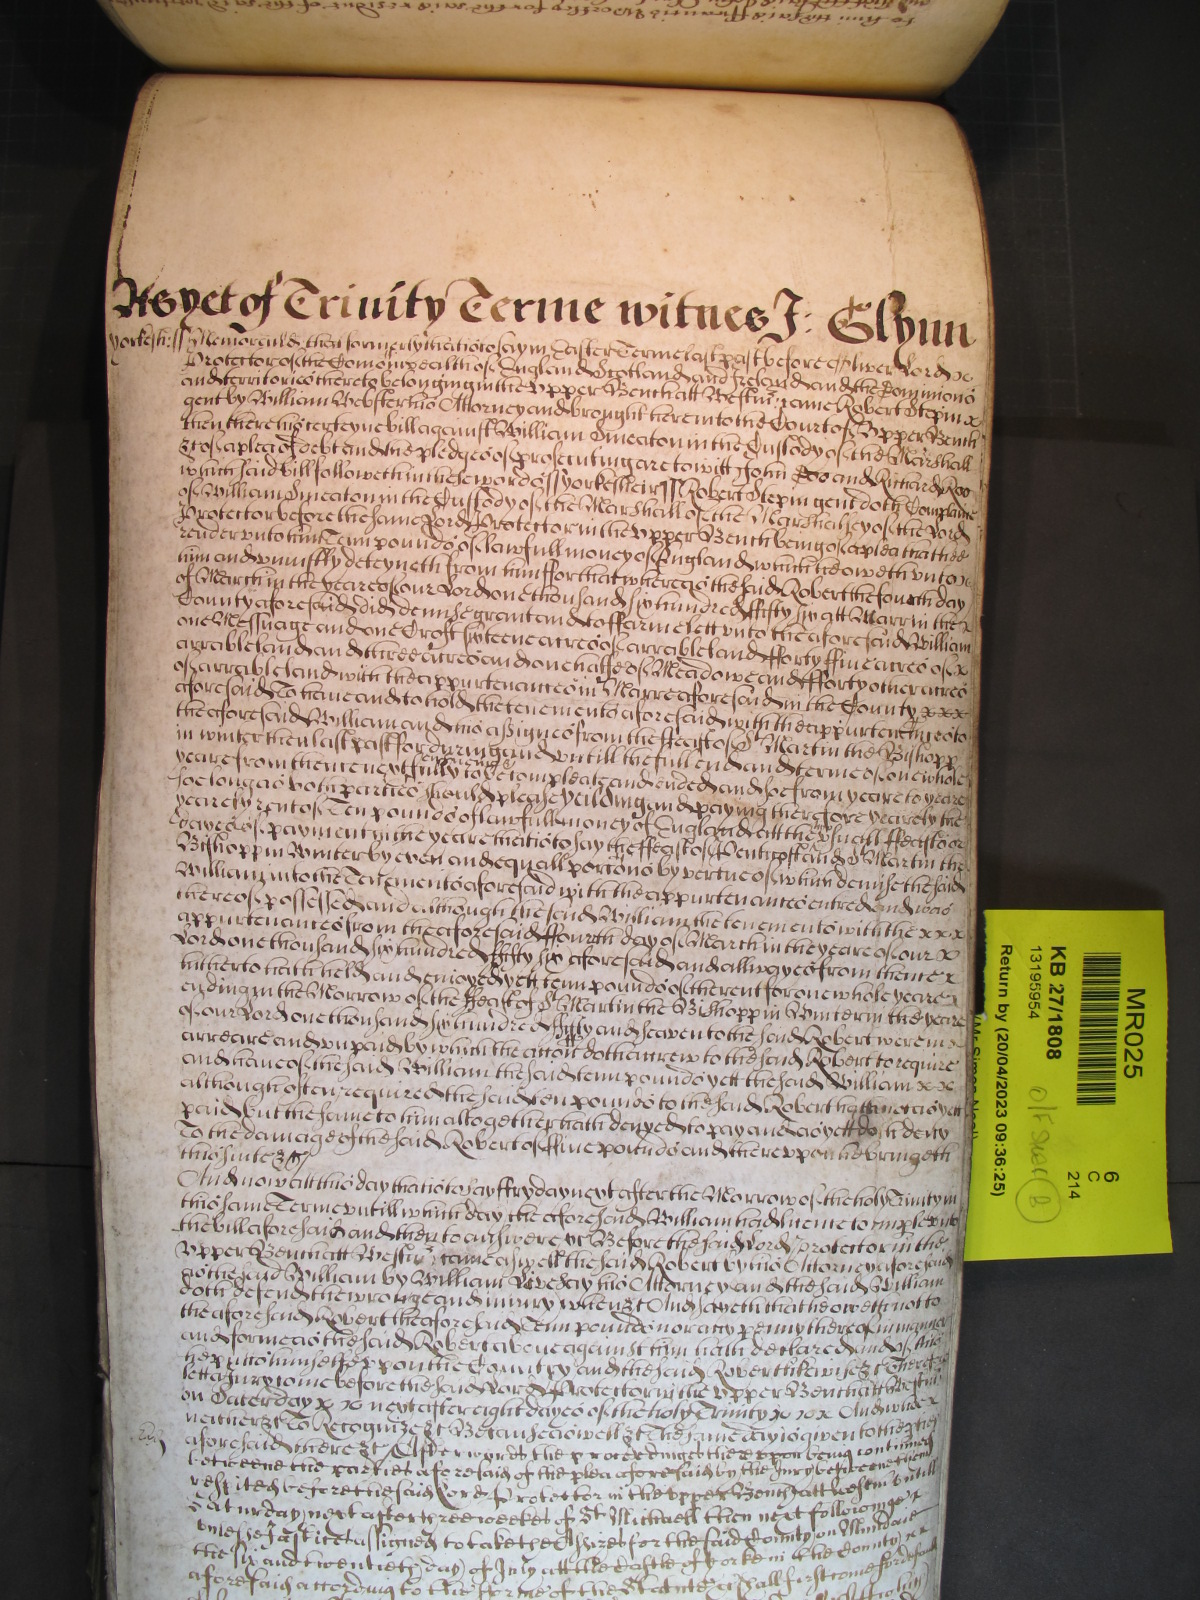 As yet of Trinity Terme witnes J: Glynn
Yorksh: ss Memorand that formerly that is to say in Easter Terme last past before Oliver Lord
Protector of the Comonwealth of England Scotland and Ireland and the Dominions
and territories thereto belonging in the upper Bench att Westm came Robert Stepin x
gent by William Webster his Attorney and brought here into the Court of upper Bench
then there his certeyne bill against William Smeaton in the Custody of the Marshall
&c of a plea of debt and the pledges of prosecuting are to witt John Doo and Richard Roo
which said bill followeth in these words ss Yorkesheir ss Robert Stepin gent doth Complaine
of William Smeaton in the Custody of the Marshall of the Marshalsey of the Lord
Protector before the same Lord Protector in the upper Bench being of a plea that hee
render unto him Tenn pounds of lawfull money of England which he oweth unto
him and uniustly deteyneth from him ffor that whereas the said Robert the fourth day
of March in the yeare of our Lord one thousand six hundred ffifty six att Marr in the x
County aforesaid did demise grant and to ffarme lett unto the aforesaid William
one Messuage and one Croft sixteene acres of arrable land fforty ffive acres of x
arrable land and three acres and one halfe of Meadowe and fforty other acres
of arrable land with the appurtenances in Marre aforesaid in the County x x x
aforesaid To have and to hold the tenements aforesaid with the appurtenances to
the aforesaid William and his assignes from the ffeast of St Martin the Bishopp
in winter then last past for during and untill the full end and terme of one whole
yeare from thence next fully to be compleate and ended and soe from yeare to yeare
soe long as both parties should please yeilding and paying therefore yearely the
yearely rent of Tenn pounds of lawfull money of England att the usuall ffeasts or
dayes of payment in the yeare that is to say the ffeasts of Pentecost and St Martin the
Bishopp in Winter by even and equall portons by vertue of which demise the said
William into the Tenements aforesaid with the appurtenances entred and was
thereof possessed and although the said William the tenements with the x x x
appurtenances from the aforesaid ffourth day of March in the yeare of our x
Lord one thousand six hundred ffifty six aforesaid and allwayes from thence x
hitherto hath held and enioyed yett tenn pounds of the rent for one whole yeare
ending in the Morrow of the ffeast of St Martin the Bishopp in Winter in the yeare
of our Lord one thousand six hundred ffifty and seaven to the said Robert were in
arreare and unpaid by which the acton doth accrew to the said Robert to require
and have of the said William the said tenn pounds yett the said William x x
although often required the said tenn pounds to the said Robert hath not as yett
paid but the same to him altogether hath denyed to pay and as yett doth deny
To the damage of the said Robert of ffive pounds and thereupon he bringeth
this suite &c
And now att this day that is to say ffryday next after the Morrow of the holy Trinity in
this same Terme untill which day the aforesaid William had licence to imple unto
the bill aforesaid and then to answere &c Before the said Lord protector in the
upper Bench att Westm came aswell the said Robert by his Attorney aforesaid
as the said William by William Loveday his Attorney and the said William
doth defend the wronge and iniury when &c And sayeth that he oweth not to
the aforesaid Robert the aforesaid Tenn pounds nor any penny thereof in manner
and forme as the said Robert above against him hath declared and of this
he putts himselfe uppon the Country and the said Robert likewise &c Therefore
lett a Jury come before the said Lord Protector in the upper Bench att Westm
on Saterday x x next after eight dayes of the holy Trinity x x x And whoe
neither &c To Recognize &c Because aswell &c The same day is given to the parties
aforesaid there &c Afterwards the proceedings thereupon being continued
betweene the parties aforesaid of the plea aforesaid by the Jury betweene them
respited before the said Lord Protector in the upper Bench att Westm untill
Saturday next after three weekes of St Michaell then next followinge
unlesse the Justices assigned to take the Assizes for the said County on Munday
the six and twentieth day of July att the Castle of Yorke in the County
aforesaid according to the forme of the Statute &c shall first come for default
MR025
6
C
214
KB 27/1808
13195954
Return by (20/04/2023 09:36:25)